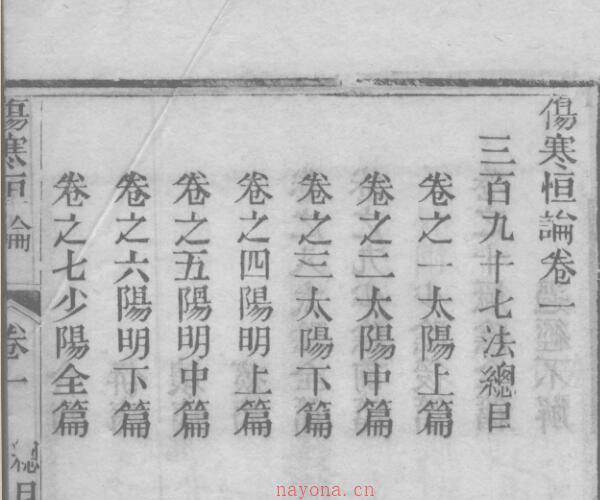 傷寒恒論卷一
三百九十七法總目
卷之一太陽上篇
卷之二太陽中篇
卷之三太陽下篇
卷之四陽明上篇
卷之五陽明中篇
卷之六陽明下篇
卷之七少陽全篇
傷寒恒論
卷一
總目
nayona.cn